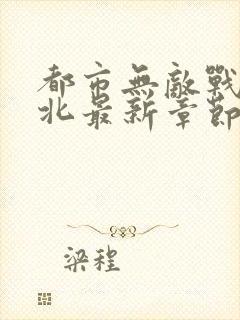 都市無敵戰
北最新章節
梁程